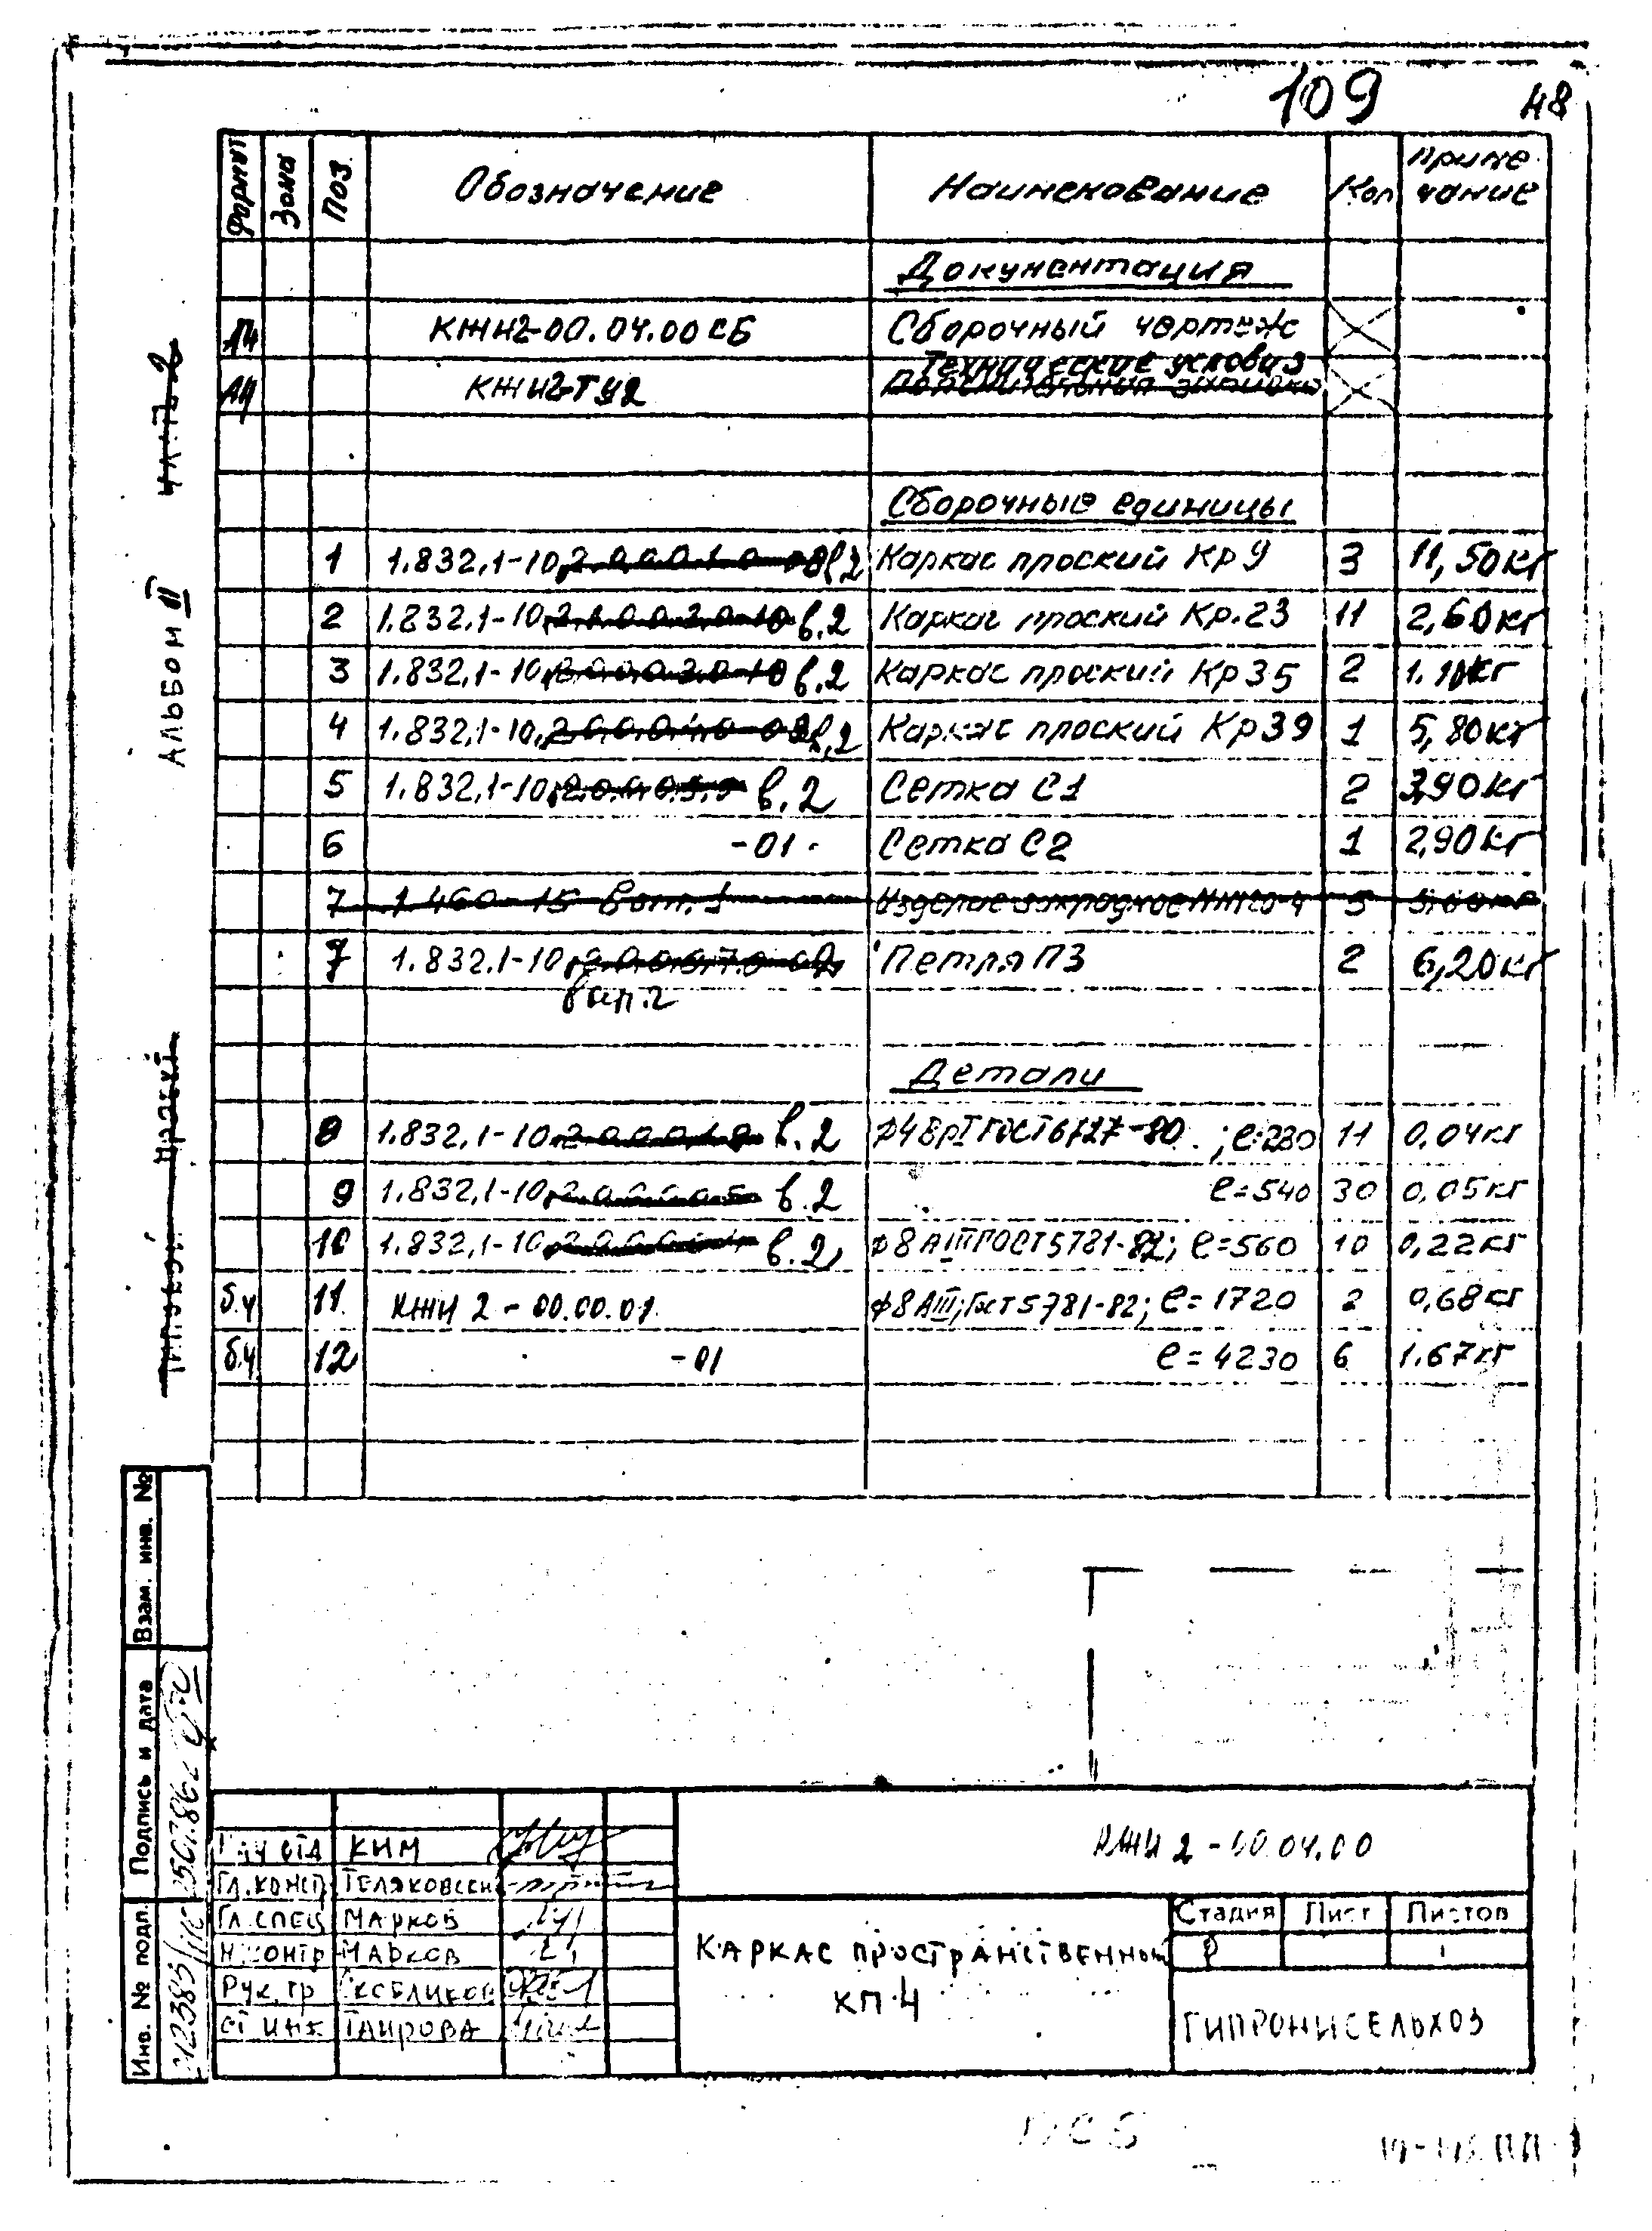 109
48
Формат Зона Поз. Обозначение Наименование Кол Приме
чание
Документация
А4 КЖИ2-00.04.00СБ Сборочный чертеж
А4 КЖИ2-ТУ2 Технические условия
Сборочные единицы
1 1.832.1-10 в.2 Каркас плоский Кр 9 3 11,50кг
2 1.832.1-10 в.2 Каркас плоский Кр.23 11 2,60кг
3 1.832.1-10 в.2 Каркас плоский Кр 35 2 1.10кг
4 1.832.1-10 в.2 Каркас плоский Кр 39 1 5,80кг
5 1.832.1-10 в.2 Сетка С1 2 3,90кг
6 -01 Сетка С2 1 2,90кг
7 1.460-15 вып.1 Изделие закладное 5
7 1.832.1-10 Петля П3 2 6,20кг
вып.2
Детали
8 1.832.1-10 в.2 ф4ВрI ГОСТ6727-80; ℓ=230 11 0,04кг
9 1.832.1-10 в.2 ℓ=540 30 0,05кг
10 1.832.1-10 в.2 ф8АIII ГОСТ5781-82; ℓ=560 10 0,22кг
б.ч 11 КЖИ 2-00.00.01 ф8АIII; Гост5781-82; ℓ=1720 2 0,68кг
б.ч 12 -01 ℓ=4230 6 1.67кг
АЛЬБОМ III
Взам. инв. №
Подпись и дата
Инв. № подл.
КЖИ 2-00.04.00
Нач отд КИМ
Гл.конст
Гл.спец Марков
Н.контр Марков
Рук.гр
Ст инж Таирова
КАРКАС ПРОСТРАНСТВЕННЫЙ
КП 4
Стадия Лист Листов
Р 1
ГИПРОНИСЕЛЬХОЗ